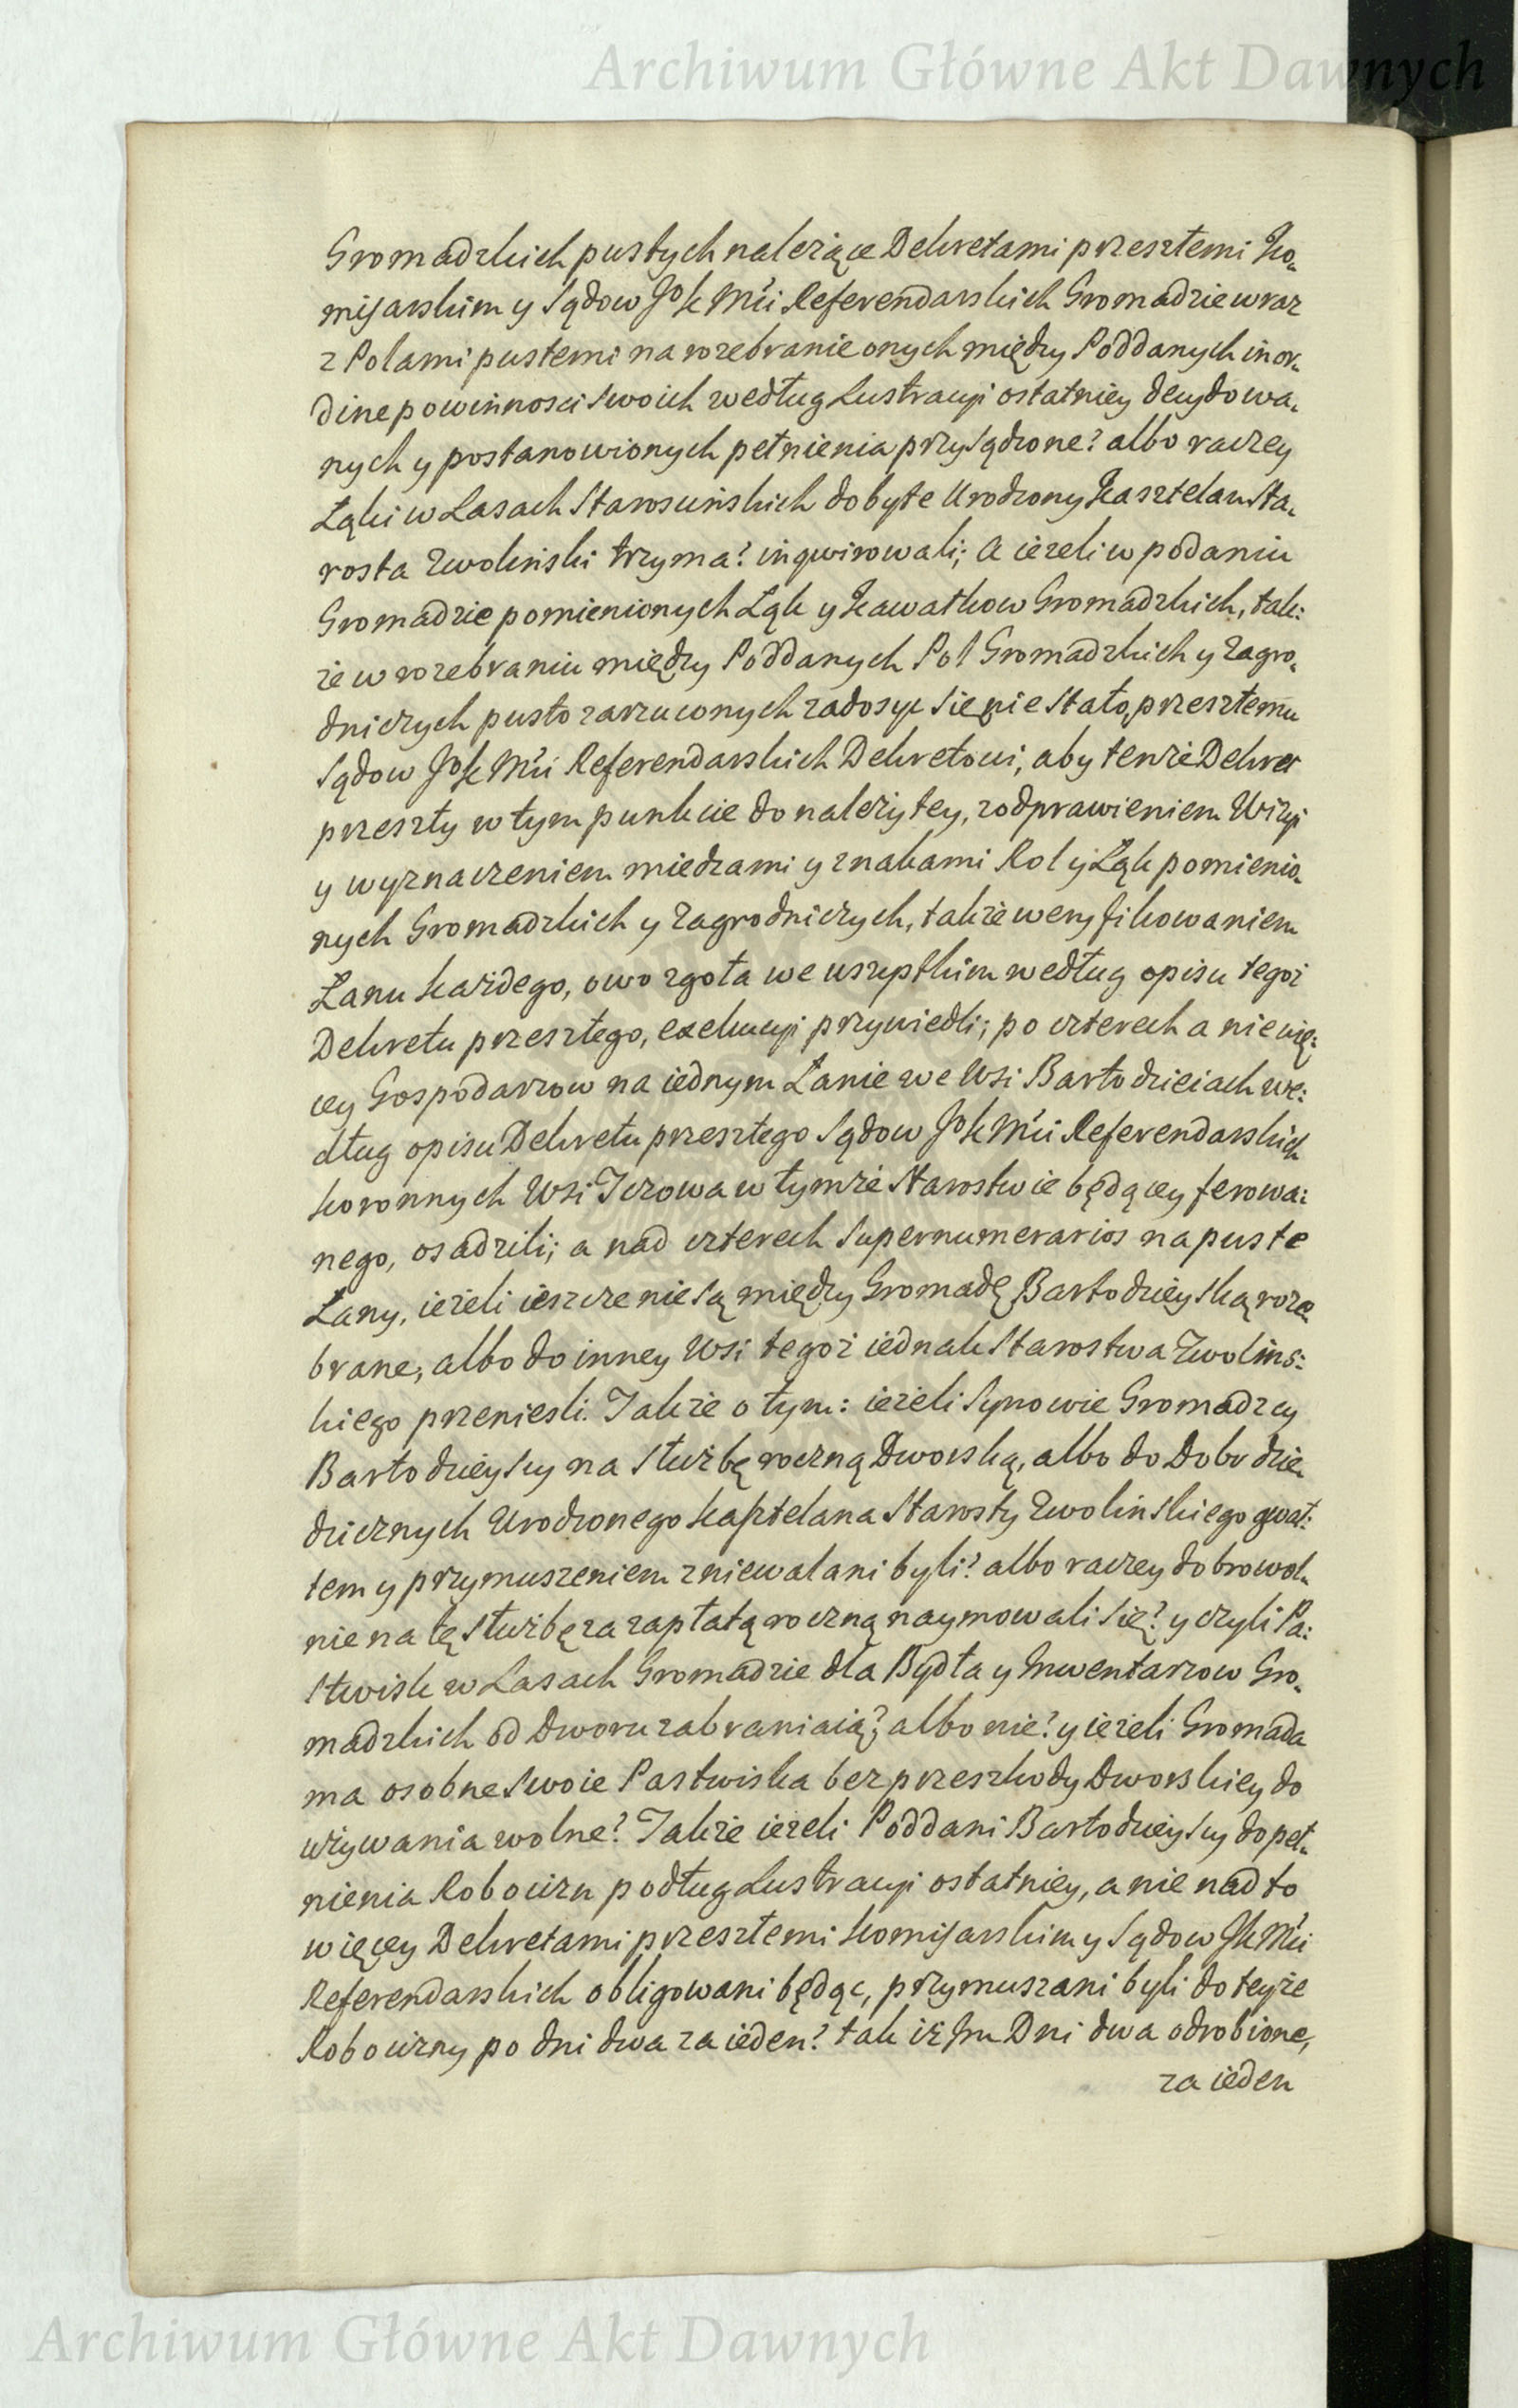 Archiwum Główne Akt Dawnych
Gromadzkich pustych należące Dekretami przeszłemi Ko„
misarskim y Sądow JoK Mći Referendarskich Gromadzie wraz
z Polami pustemi na rozebranie onych między Poddanych in or„
dine powinnosci swoich według Lustracyi ostatniey decydowa„
nych y postanowionych pełnienia przysądzone? albo raczey
Łąki w Lasach Starosцińskich dobyte Urodzony Kasztelan Sta„
rosta Zwoliński trzyma? inqwirowali; A ieżeli w podaniu
Gromadzie pomienionych Łąk y Kawałkow Gromadzkich, tak:
że w rozebraniu między Poddanych Pol Gromadzkich y Zagro„
dniczych pusto zarzuconych zadosyć się nie stało, przeszłemu
Sądow JoK Mći Referendarskich Dekretowi, aby tenże Dekret
przeszły w tym punkcie do należytey, z odprawieniem Wizyi
y wyznaczeniem miedzami y znakami Rol y Łąk pomienio„
nych Gromadzkich y Zagrodniczych, także weryfikowaniem
Łanu każdego, owo zgoła we wszystkim według opisu tegoż
Dekretu przeszłego, exekucyi przywiedli; po czterech a nie wię:
cey Gospodarzow na iednym Łanie we Wsi Bartodzieiach we:
dług opisu Dekretu przeszłego Sądow JoK Mći Referendarskich
Koronnych Wsi Jczowa w tymże Starostwie będącey ferowa:
nego, osadzili; a nad czterech supernumerarios na puste
Łany, ieżeli ieszcze nie są między Gromadę Bartodzieyską roze„
brane, albo do inney Wsi tegoż iednak Starostwa Zwolins:
kiego przeniesli. Także o tym: ieżeli Synowie Gromadzcy
Bartodzieyscy na służbę roczną Dworską, albo do Dobr dzie„
dzicznych Urodzonego Kasztelana Starosty Zwolinskiego gwał:
tem y przymuszeniem zniewalani byli? albo raczey dobrowol„
nie na tę służbę za zapłatą roczną naymowali się? y czyli Pa:
stwisk w Lasach Gromadzie dla Bydła y Jnwentarzow Gro„
madzkich od Dworu zabraniaią? albo nie? y ieżeli Gromada
ma osobne swoie Pastwiska bez przeszkody Dworskiey do
używania wolne? Także ieżeli Poddani Bartodzieyscy do peł„
nienia Robocizn podług Lustracyi ostatniey, a nie nad to
więcey Dekretami przeszłemi Komisarskim y Sądow JK Mći
Referendarskich obligowani będąc, przymuszani byli do teyże
Robocizny po dni dwa za ieden? tak iż Jm Dni dwa odrobione,
za ieden
Archiwum Główne Akt Dawnych